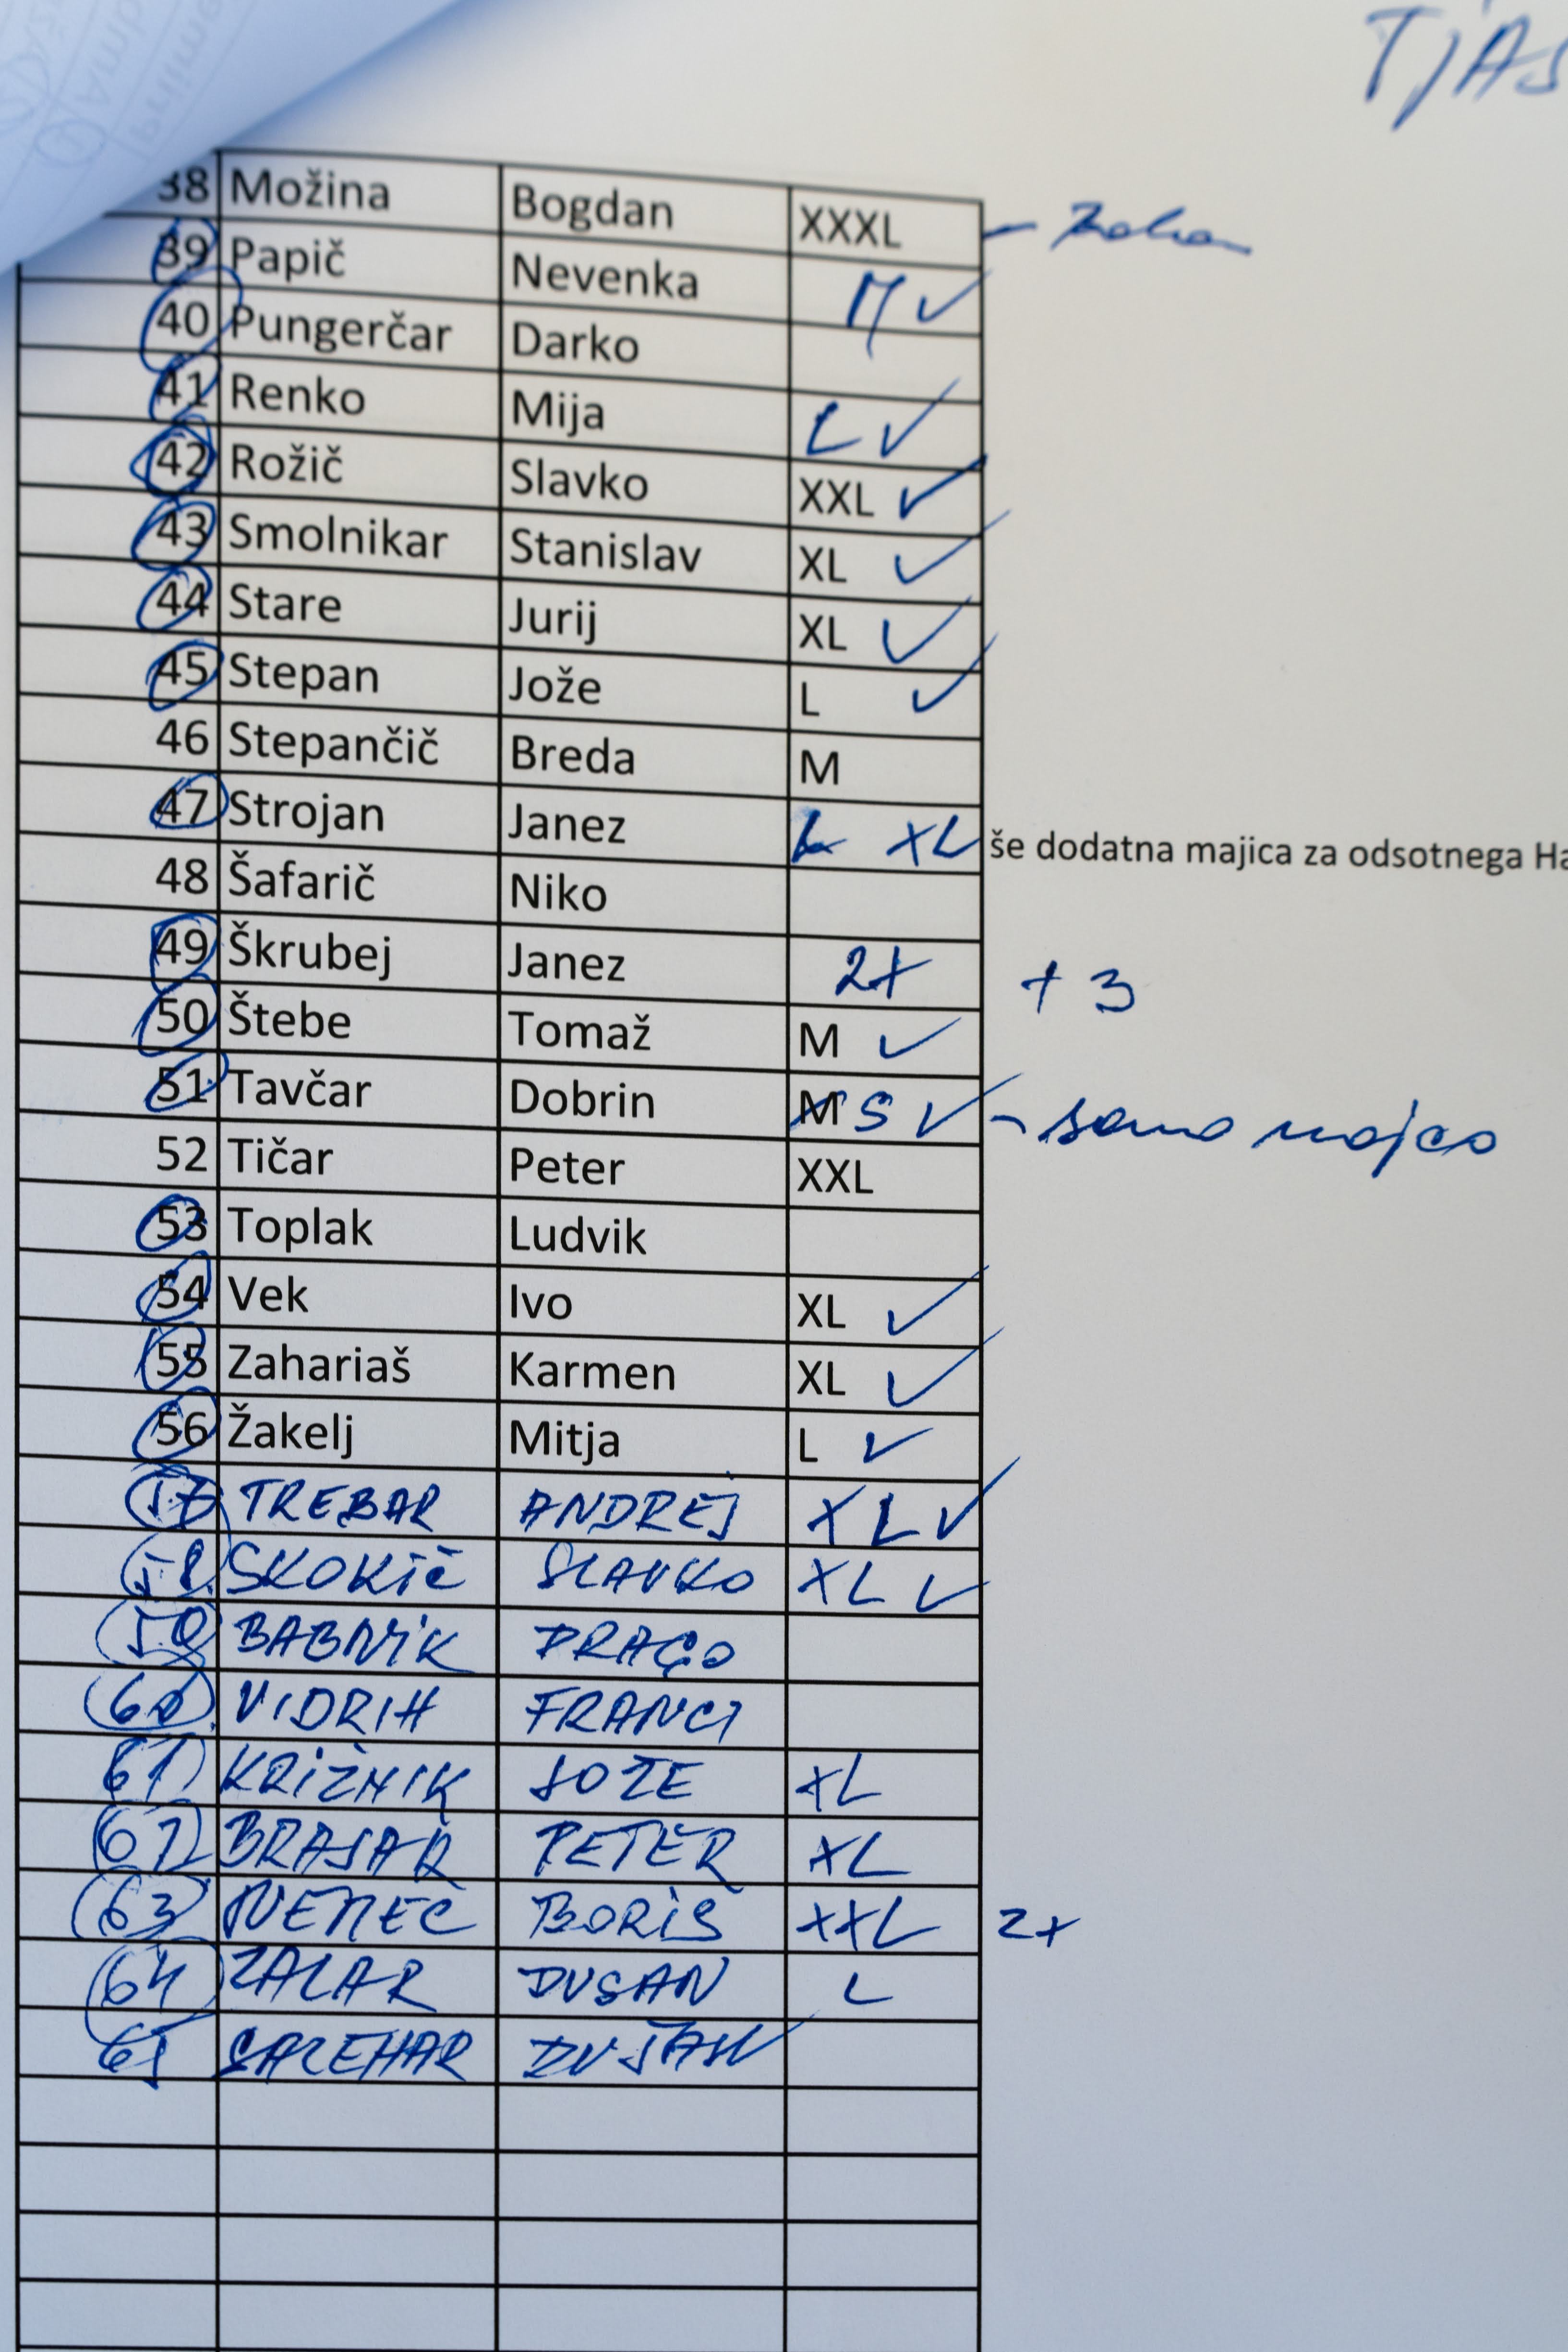 TJAS
38 Možina Bogdan XXXL -
39 Papič Nevenka M ✓
40 Pungerčar Darko
41 Renko Mija L ✓
42 Rožič Slavko XXL ✓
43 Smolnikar Stanislav XL ✓
44 Stare Jurij XL ✓
45 Stepan Jože L ✓
46 Stepančič Breda M
47 Strojan Janez L XL še dodatna majica za odsotnega Ha
48 Šafarič Niko
49 Škrubej Janez 2x + 3
50 Štebe Tomaž M ✓
51 Tavčar Dobrin M S ✓ - samo majco
52 Tičar Peter XXL
53 Toplak Ludvik
54 Vek Ivo XL ✓
55 Zahariaš Karmen XL ✓
56 Žakelj Mitja L ✓
57 TREBAR ANDREJ XL ✓
58. SKOKIČ SLAVKO XL ✓
59. BABNIK DRAGO
60. VIDRIH FRANCI
61 KRIŽNIK JOŽE XL
62 BRAJAR PETER XL
63 NEMEC BORIS XXL 2x
64 ZALAR DUSAN L
65 DUŠAN